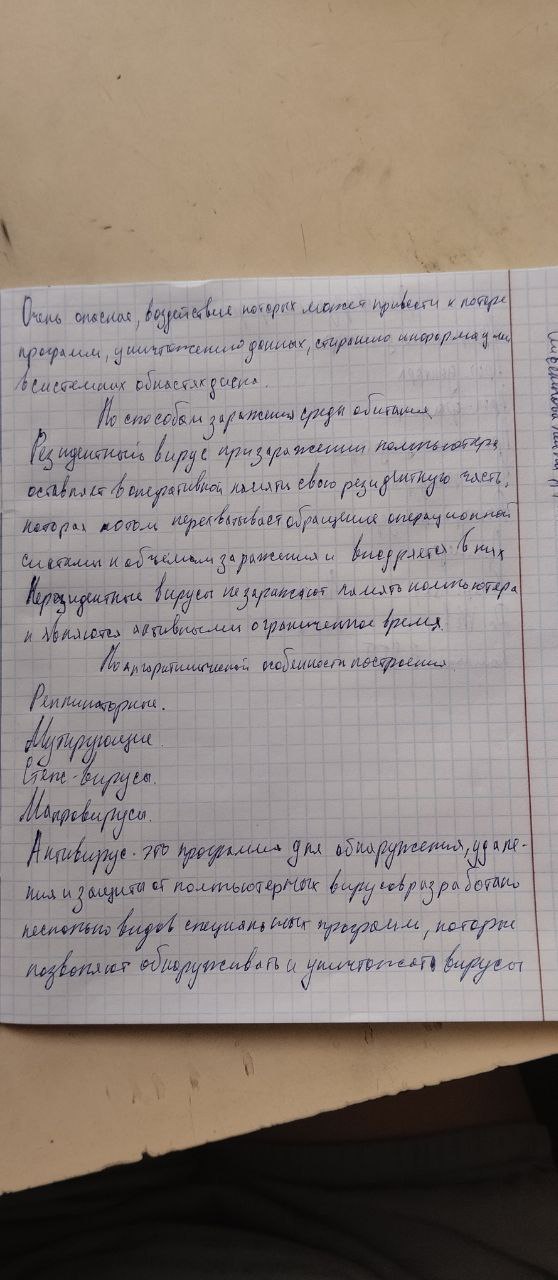 Очень опасная, воздействие которых может привести к потере
программ, уничтожению данных, стиранию информации
в системных областях диска.
По способам заражения среды обитания
Резидентный вирус при заражении компьютера
оставляет в оперативной памяти свою резидентную часть,
которая потом перехватывает обращение операционной
системы к объёмам заражения и внедряется в них
Нерезидентные вирусы не заражают память компьютера
и являются активными ограниченное время.
По алгоритмической особенности построения
Репликаторные.
Мутирующие.
Стелс-вирусы.
Макровирусы.
Антивирус - это программа для обнаружения, удале-
ния и защиты от компьютерных вирусов разработано
несколько видов специальных программ, которые
позволяют обнаруживать и уничтожать вирусы